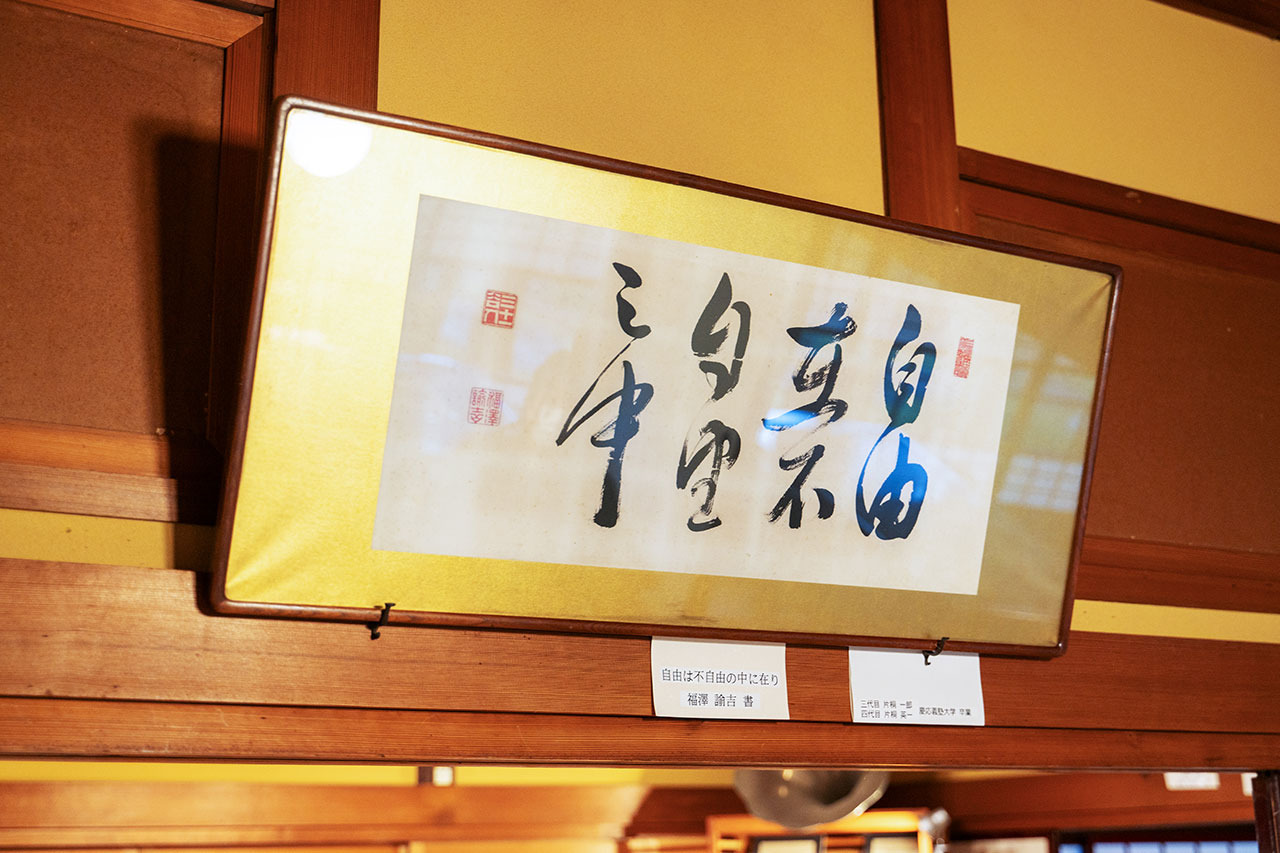 自由
在不
自由
之中
自由は不自由の中に在り
福澤 諭吉 書
三代目 片桐 一郎
四代目 片桐 英一 慶応義塾大学 卒業